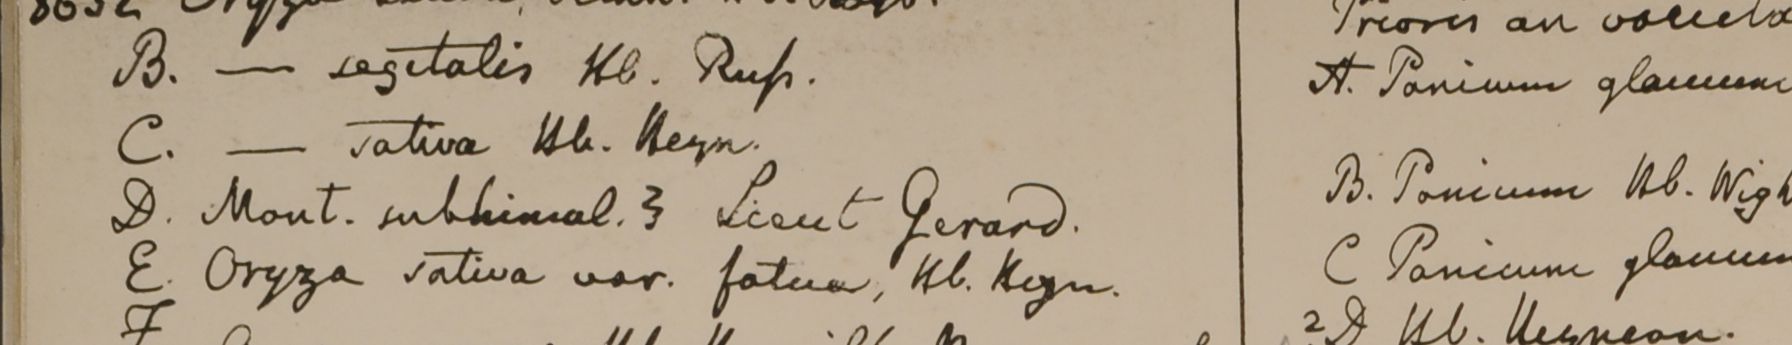 8632 Oryza
B. — segetalis Hb. Rufs.
C. — sativa Hb. Heyn.
D. Mont. subhimal. 3 Lieut Gerard.
E. Oryza sativa var. fatua, Hb. Heyn.
F
Prioris an varieta
A. Panicum glaucum
B. Panicum Hb. Wigh
C Panicum glaucum
2 D Hb. Heynean.